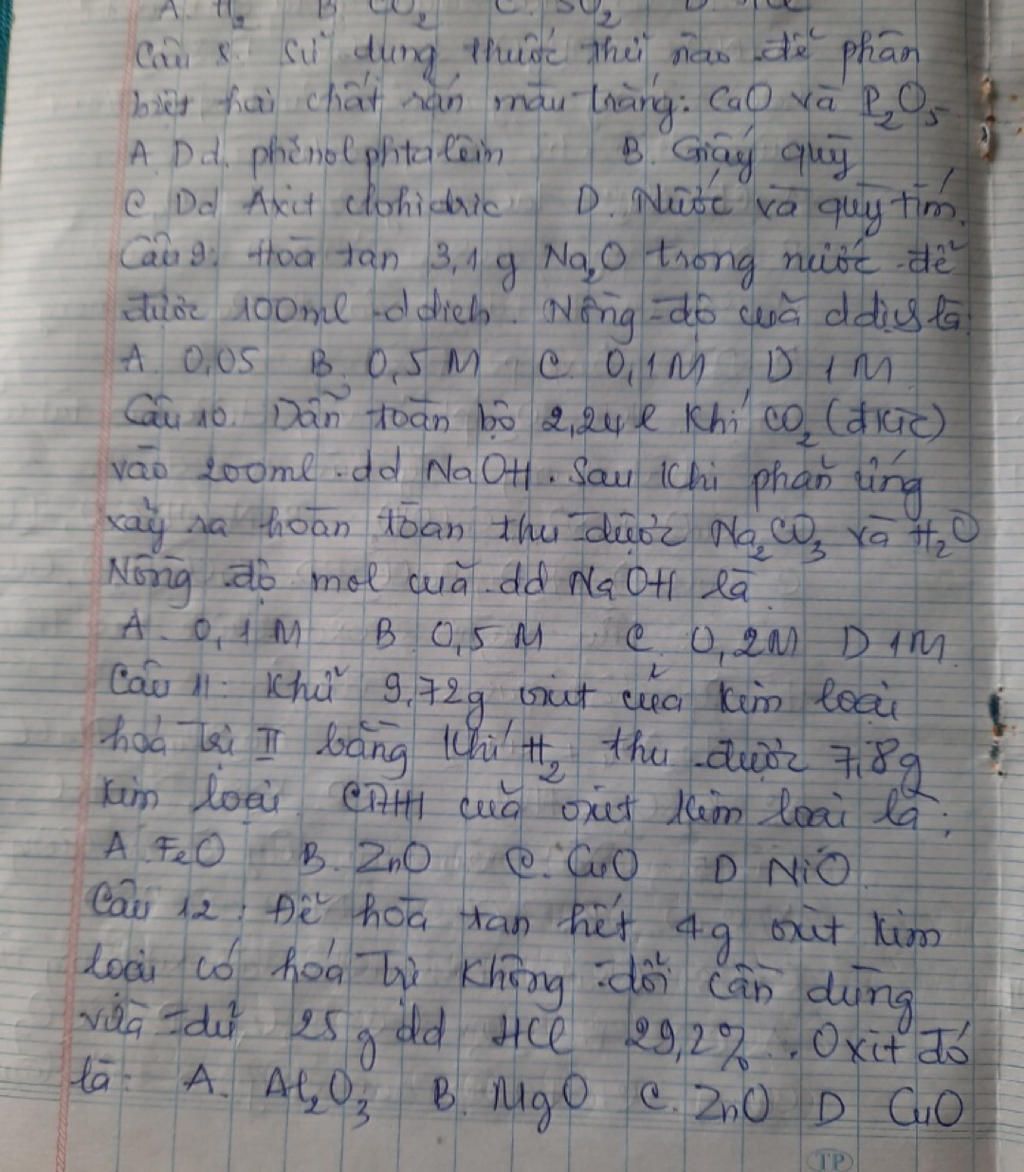 A. H₂ B CO₂ C. SO₂ D
Câu 8. Sử dụng thuốc thử nào để phân
biệt hai chất rắn màu trắng: CaO và P₂O₅
A. Dd. phênolphtalêin B. Giấy quỳ
C. Dd Axit clohidric D. Nước và quỳ tím.
Câu 9: Hoà tan 3,1 g Na₂O trong nước để
được 100ml d dịch. Nồng độ của ddịch là:
A. 0,05 B. 0,5 M C. 0,1M D 1M
Câu 10. Dẫn toàn bộ 2,24 l khí CO₂ (đktc)
vào 200ml dd NaOH. Sau khi phản ứng
xảy ra hoàn toàn thu được Na₂CO₃ và H₂O
Nồng độ mol của dd NaOH là.
A. 0,1M B 0,5M C. 0,2M D 1M.
Câu 11: Khử 9,72g oxit của kim loại
hoá trị II bằng khí H₂ thu được 7,8g
kim loại. CTHH của oxit kim loại là:
A. FeO B. ZnO C. CuO D NiO.
Câu 12: Để hoà tan hết 4g oxit kim
loại có hoá trị không đổi cần dùng
vừa đủ 25g dd HCl 29,2%. Oxit đó
là: A. Al₂O₃ B. MgO C. ZnO D CuO
TP